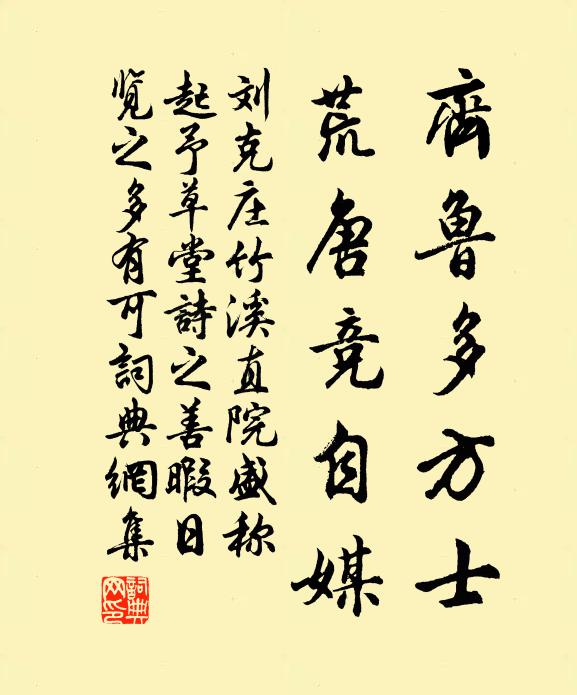 齊魯多方士
荒唐竞自媒
刘克庄竹溪直院盛称
起予草堂詩之善暇日
览之多有可詞典網集
詞典網印